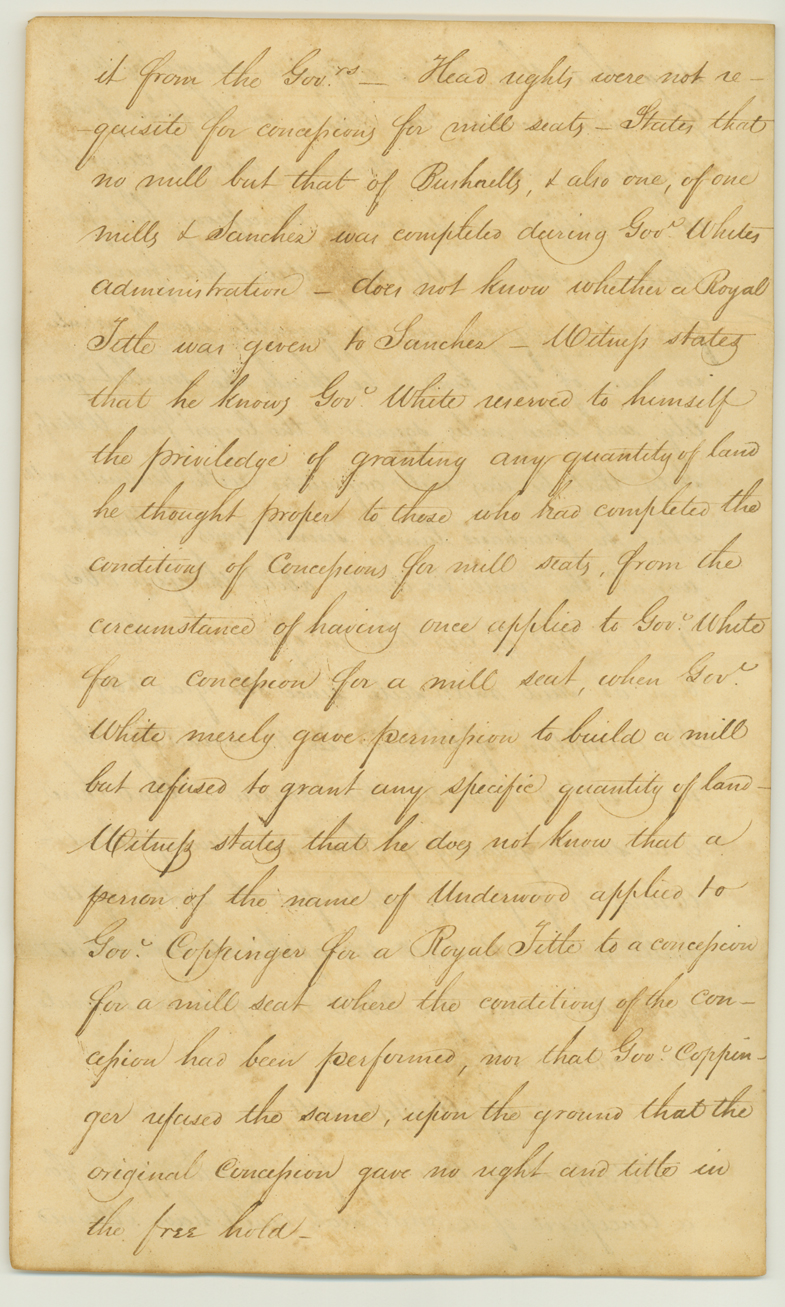 it from the Gov.rs — Head rights were not re-
-quisite for concessions for mill seats — States that
no mill but that of Bushnells, & also one, of one
mills & Sanchez was completed during Gov.r Whites
administration — does not know whether a Royal
Title was given to Sanchez — Witness states
that he knows Gov.r White reserved to himself
the priviledge of granting any quantity of land
he thought proper to those who had completed the
conditions of Concessions for mill seats, from the
circumstance of having once applied to Gov.r White
for a concession for a mill seat, when Gov.r
White merely gave permission to build a mill
but refused to grant any specific quantity of land —
Witness states that he does not know that a
person of the name of Underwood applied to
Gov.r Coppinger for a Royal Title to a concession
for a mill seat where the conditions of the con-
cession had been performed, nor that Gov.r Coppin-
ger refused the same, upon the ground that the
original Concession gave no right and title in
the free hold —